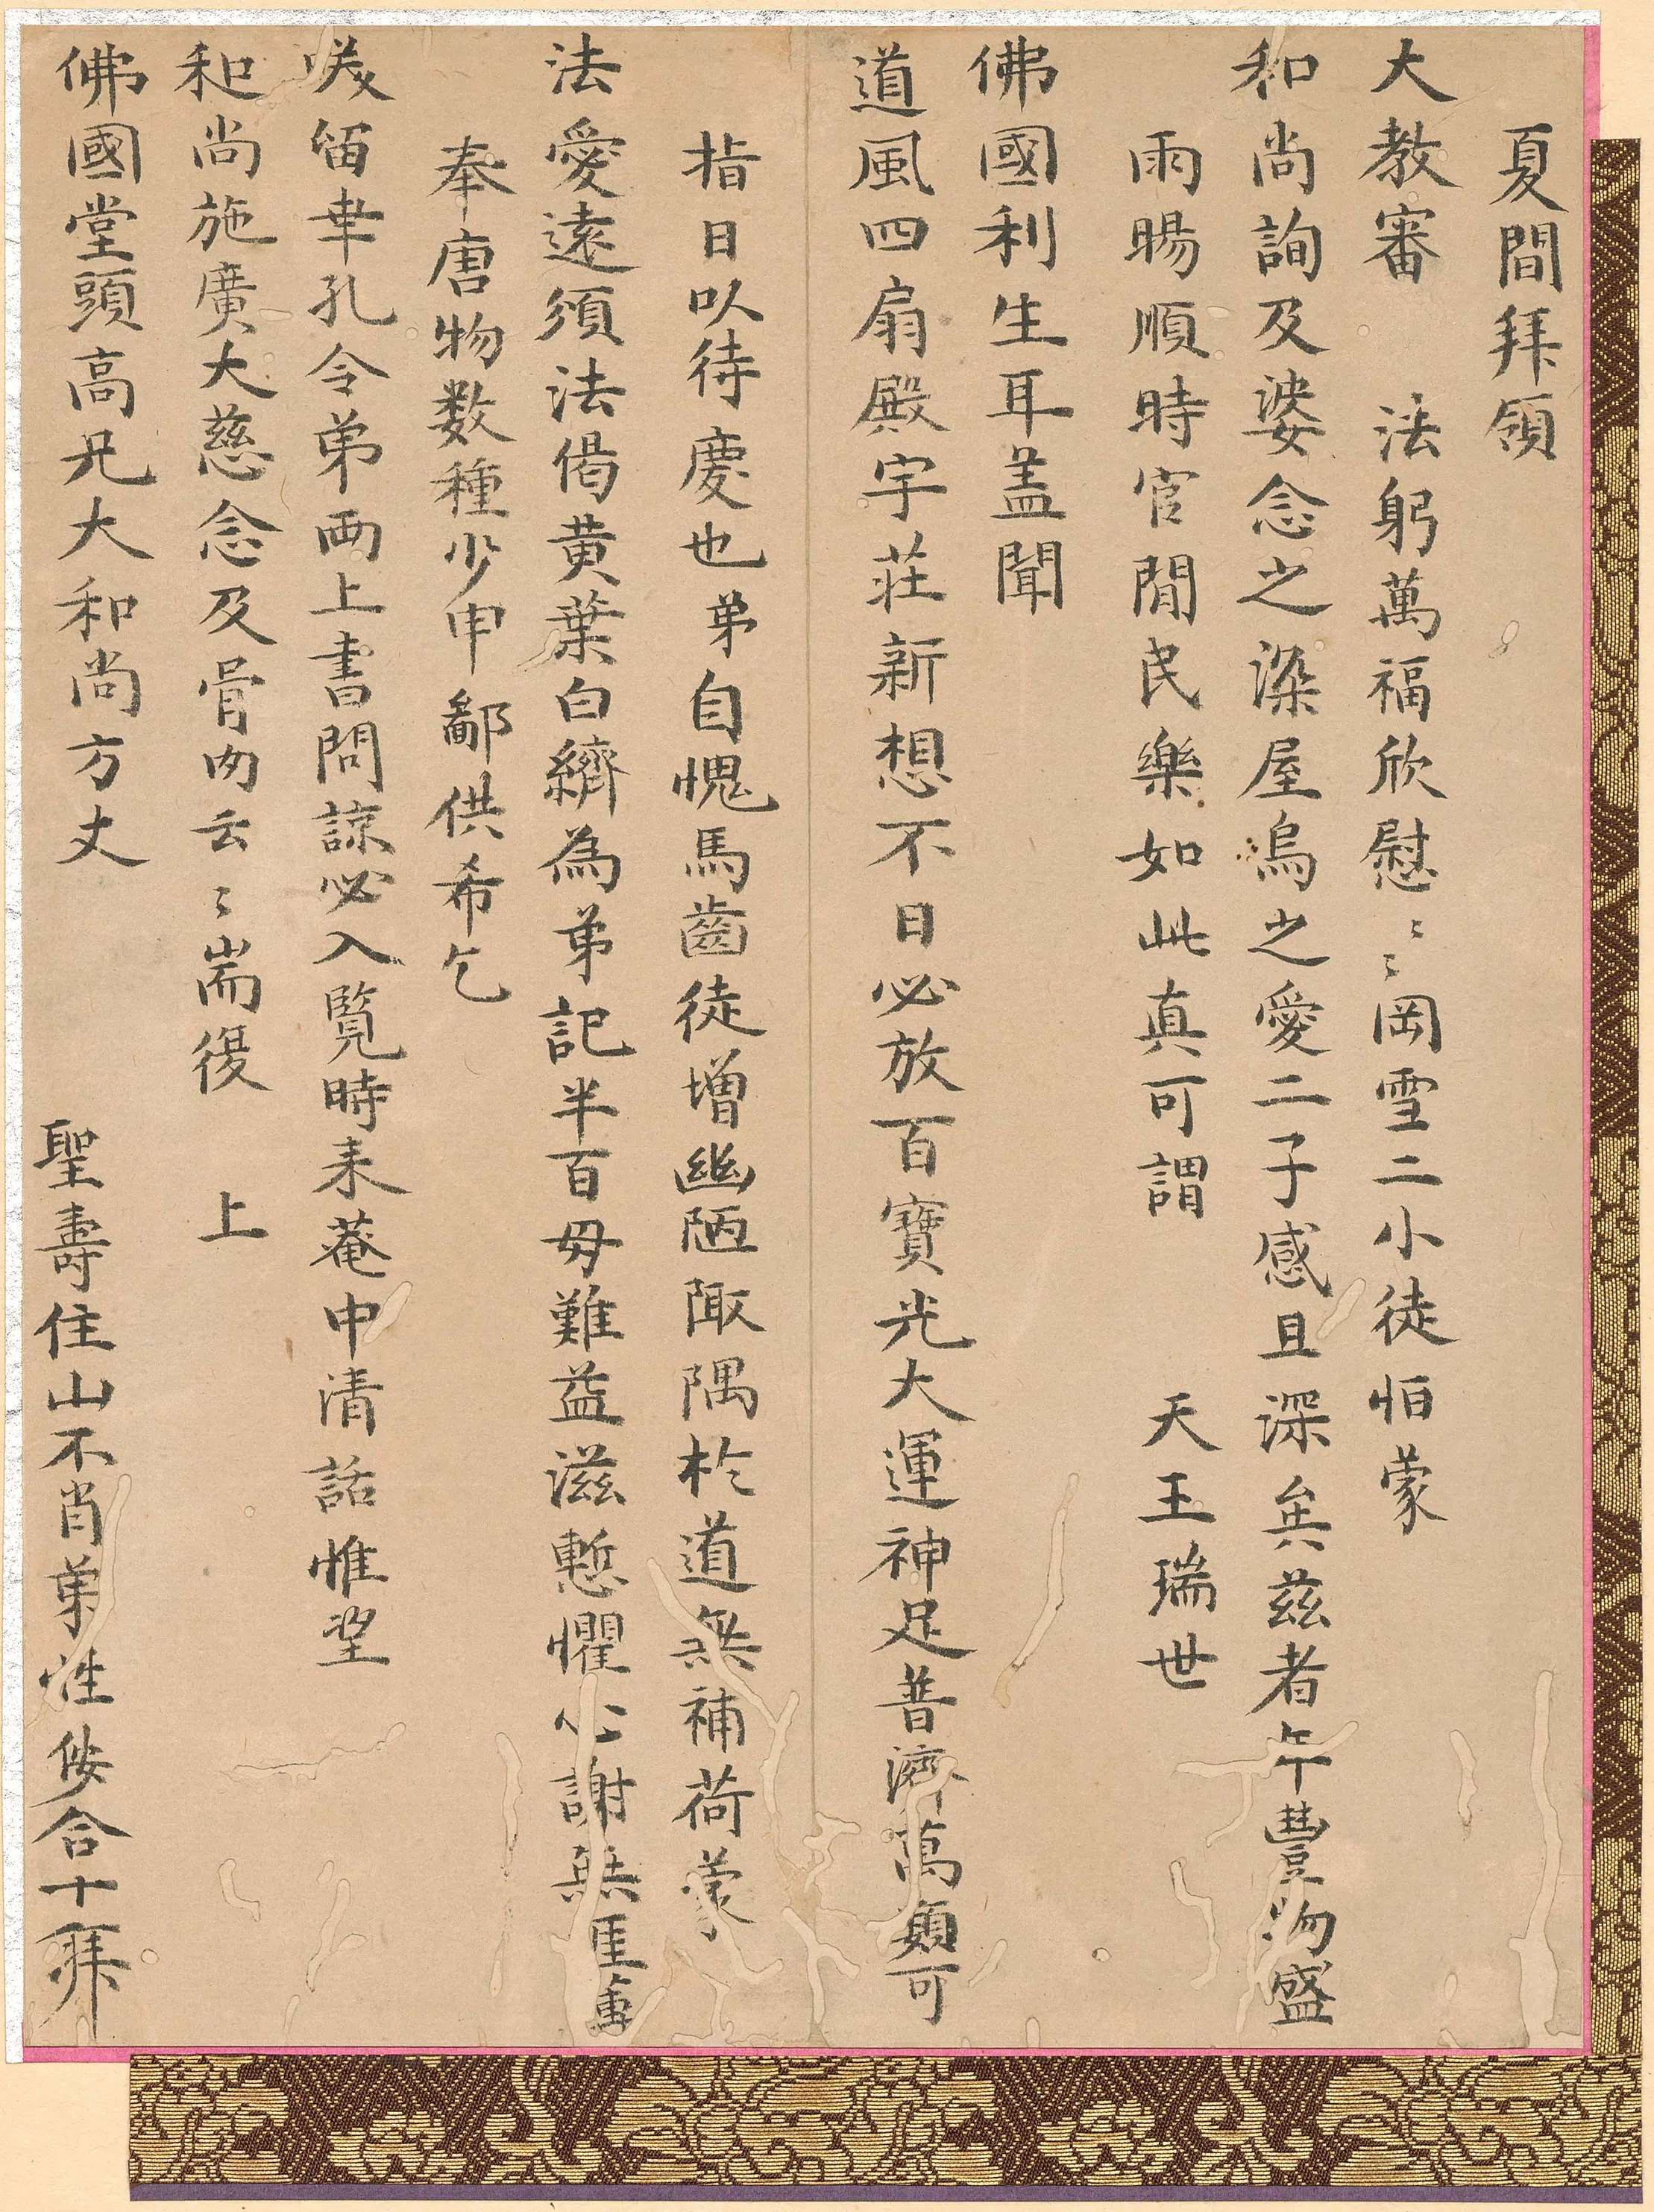 夏間拜領
大教審　法躬萬福欣慰〻〻岡雪二小徒怕蒙
和尚詢及婆念之染屋烏之愛二子感且深矣茲者午豐物盛
雨暘順時官閒民樂如此真可謂　天王瑞世
佛國利生耳盖聞
道風四扇殿宇莊新想不日必放百寶光大運神足普濟萬類可
指日以待慶也弟自愧馬齒徒增幽陋陬隅於道無補荷蒙
法愛遠須法偈黄葉白縩為弟記半百毋難益滋慙懼心謝無厓重
奉唐物数種少申鄙供希乞
咲留聿孔令弟両上書問諒必入覧時来菴中清話惟望
和尚施廣大慈念及骨肉云〻耑復　上
佛國堂頭高兄大和尚方丈
聖壽住山不肖弟性侒合十拜